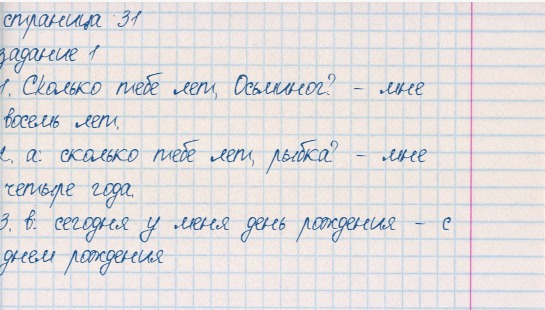 страница 31
задание 1
1. Сколько тебе лет, Осьминог? - мне
восемь лет.
2. а: сколько тебе лет, рыбка? - мне
четыре года.
3. в: сегодня у меня день рождения - с
днем рождения